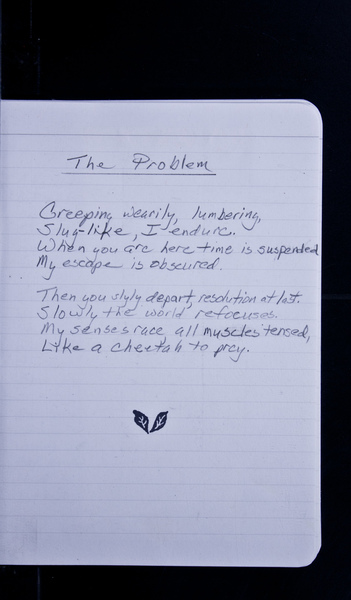 The Problem
Creeping wearily, lumbering,
Slug-like, I endure.
When you are here time is suspended
My escape is obscured.
Then you slyly depart, resolution at last.
Slowly the world refocuses.
My senses race all muscles tensed,
Like a cheetah to prey.